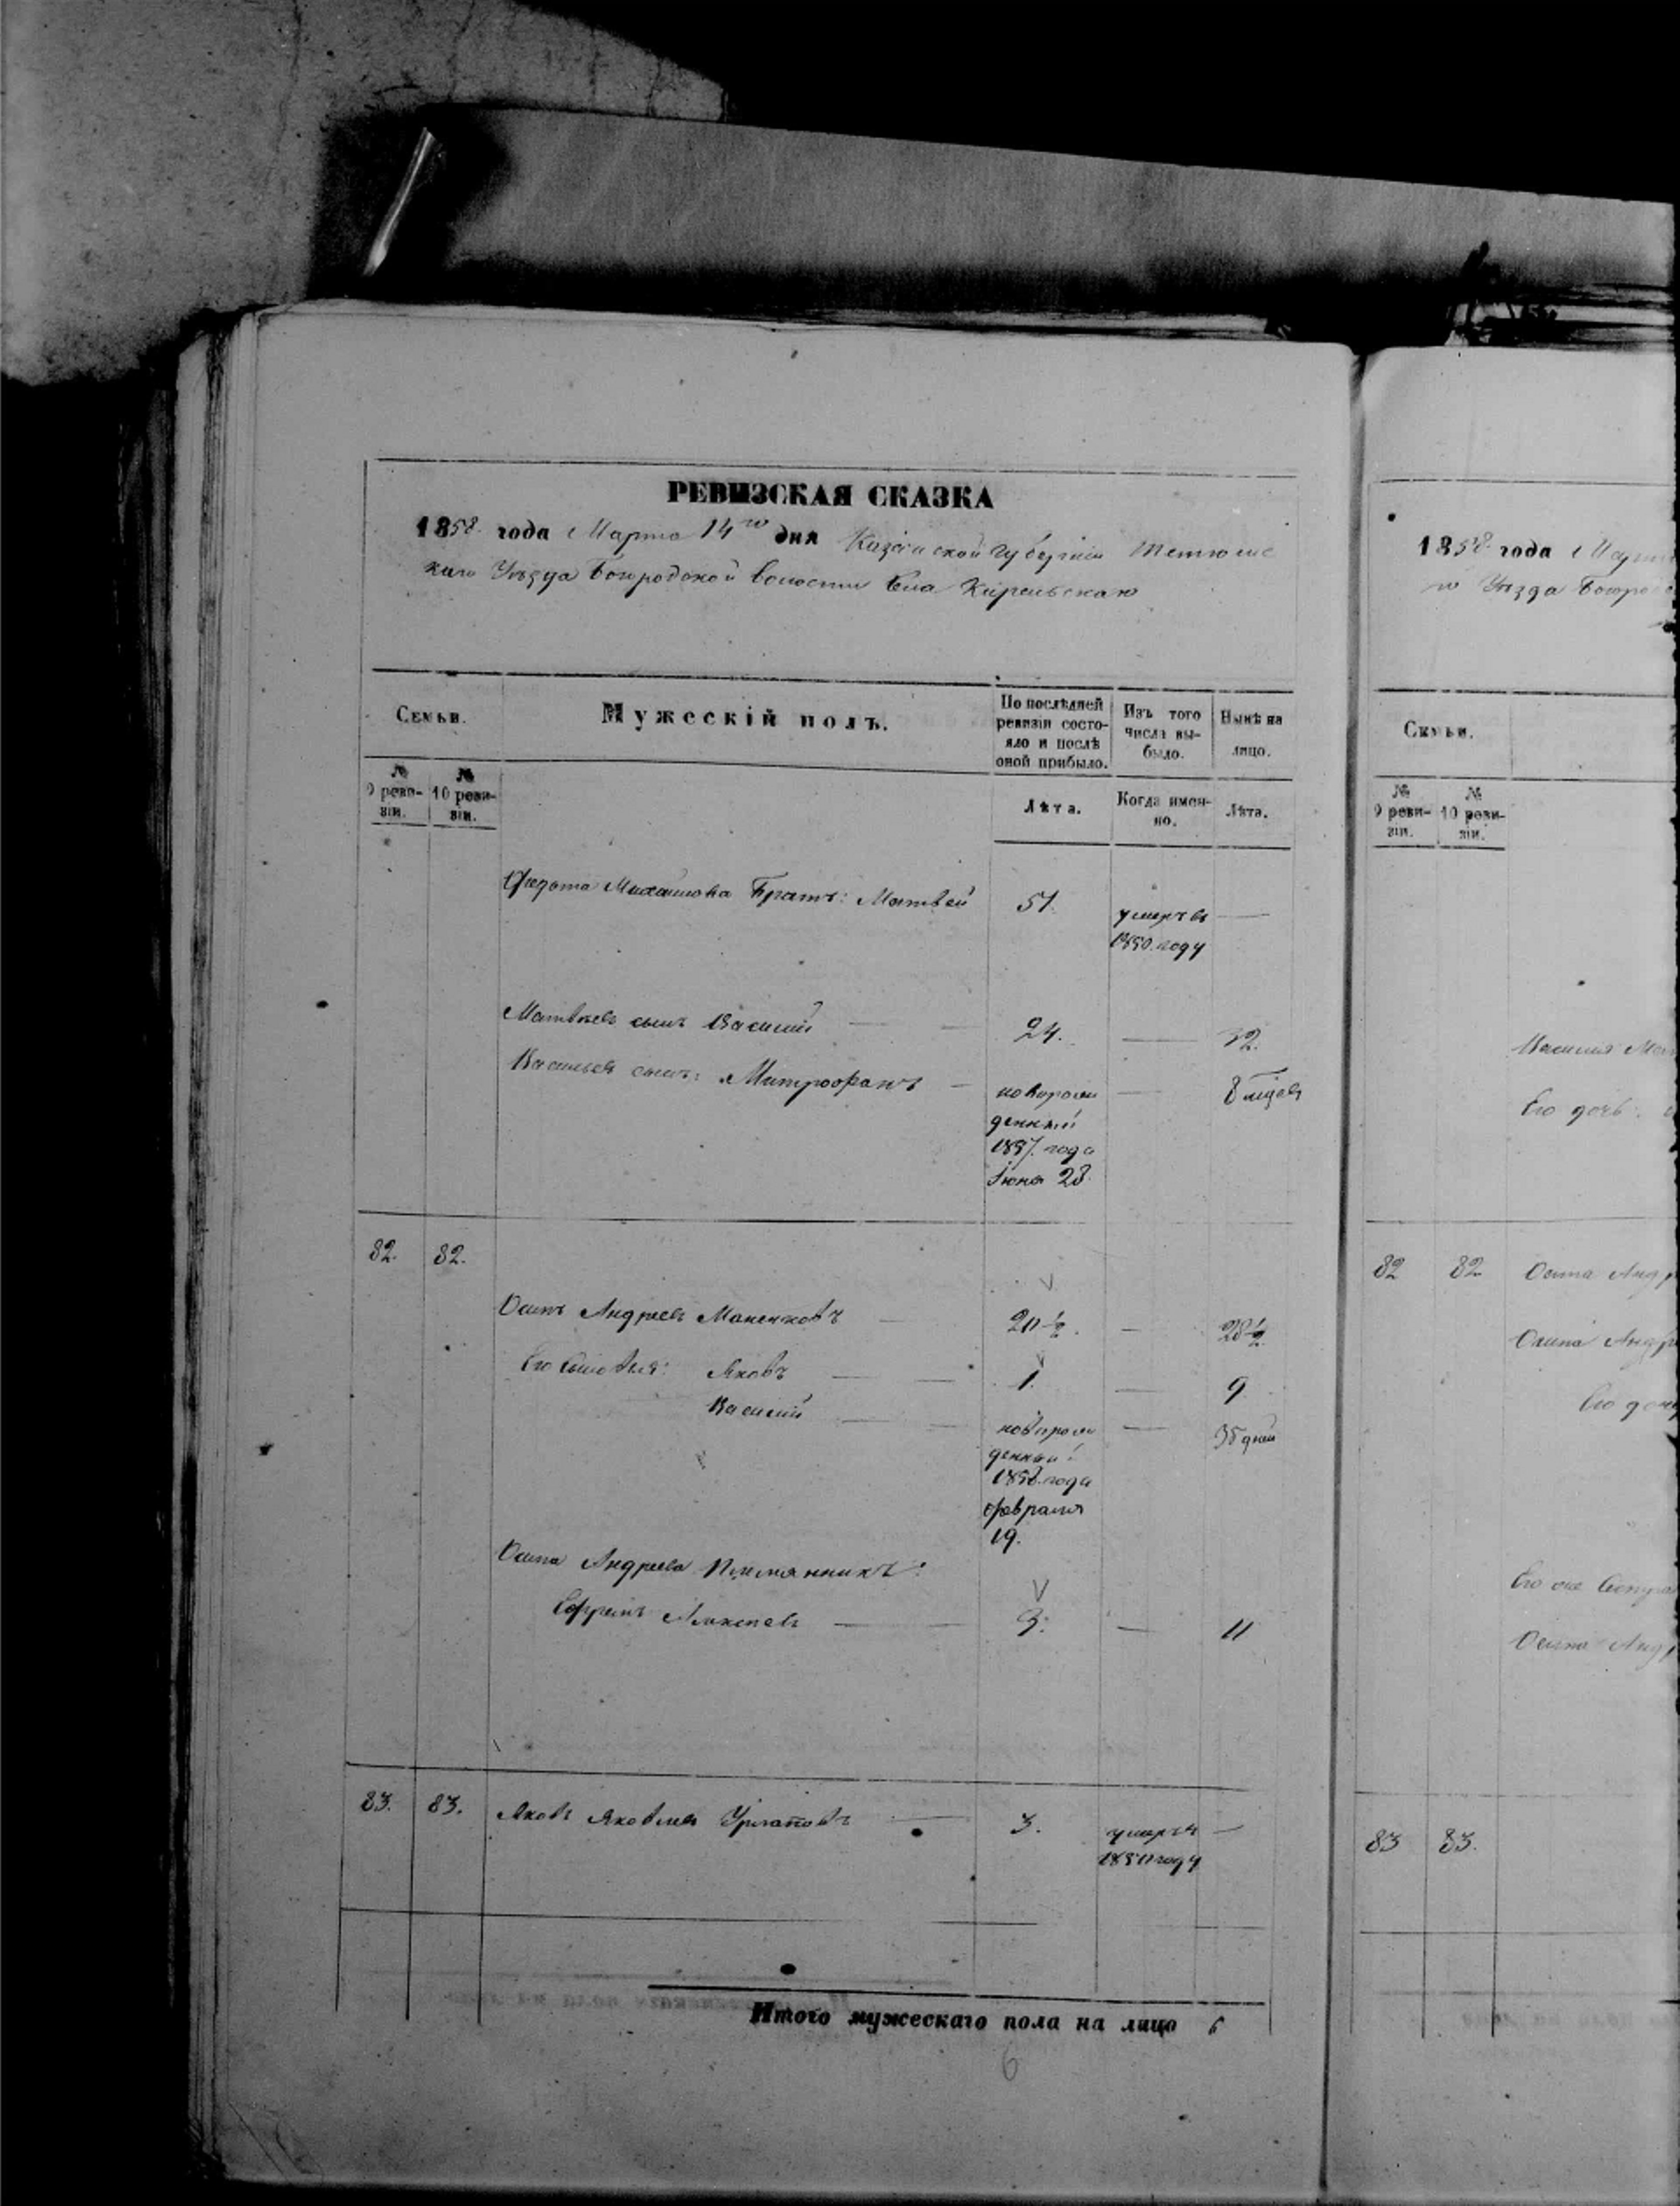 РЕВИЗСКАЯ СКАЗКА
1858 года Марта 14го дня Казанской губерніи Тетюшс
каго Уѣзда Богородской волости Села Кирельскаго
Семьи.
Мужескій полъ.
По послѣдней ревизіи состояло и послѣ оной прибыло.
Изъ того числа выбыло.
Нынѣ на лицо.
№ 9 ревизіи.
№ 10 ревизіи.
Лѣта.
Когда именно.
Лѣта.
Федота Михайлова Братъ: Матвей 51. умеръ въ —
1850. году
Матвѣевъ сынъ Василий — 24. — 32.
Васильевъ сынъ: Митрофанъ — новорож — 8 мѣцов
денный
1857. года
Іюня 28.
82. 82.
Осипъ Андреевъ — 20 ½. — 28 ½
Его Сыновья: Яковъ — 1. — 9
Василий — новорож — 35 дней
денный
1858. года
февраля
19.
Осипа Андреева Племянникъ:
Ефремъ Алексѣевъ — 3. — 11
83. 83. Яковъ Яковлевъ — 3. умеръ въ —
году
Итого мужескаго пола на лицо 6
6
1858 года
Уѣзда
Семьи.
№ 9 ревизіи.
№ 10 ревизіи.
Его дочь:
82 82
Осипа
83 83.